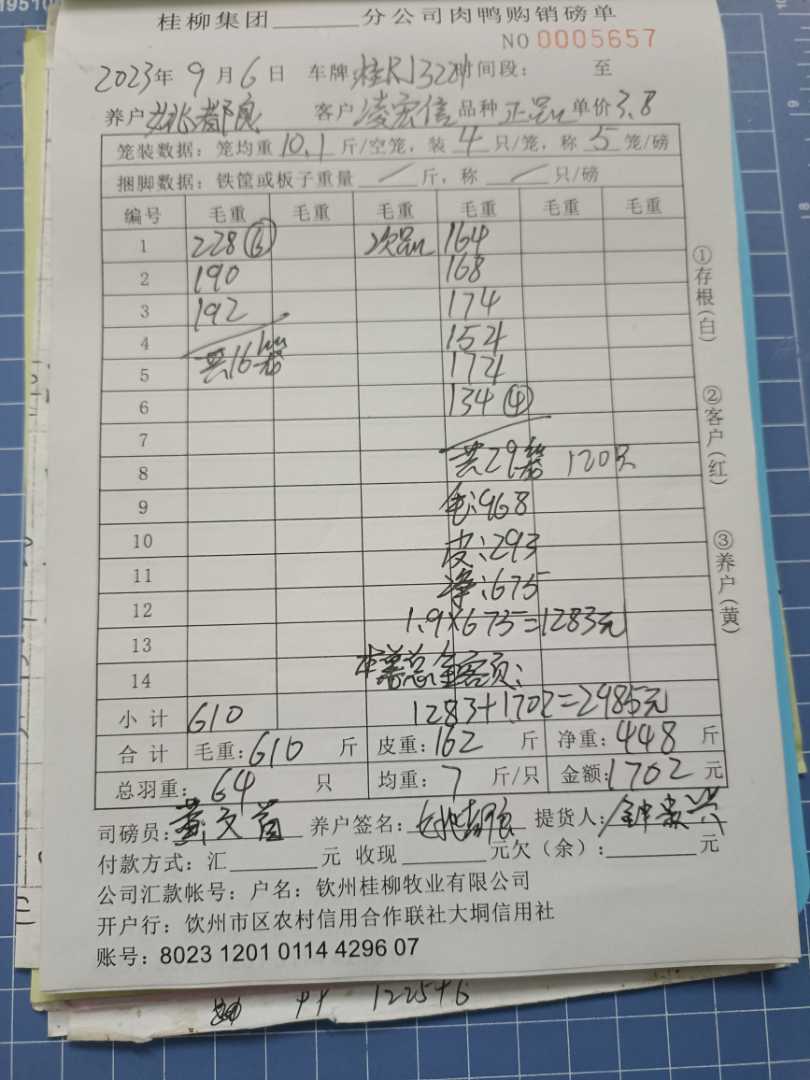 桂柳集团______分公司肉鸭购销磅单
NO 0005657
2023年 9 月 6 日 车牌:桂R1322 时间段: 至
养户 姚都良 客户 凌宏信 品种 正品 单价 3.8
笼装数据：笼均重 10.1 斤/空笼，装 4 只/笼，称 5 笼/磅
捆脚数据：铁筐或板子重量 / 斤，称 / 只/磅
编号 毛重 毛重 毛重 毛重 毛重 毛重
1 228⑥ 次品 164
2 190 168
3 192 174
4 154
5 共16笼 174
6 134④
7
8 共29笼 120只
9 毛:968
10 皮:293
11 净:675
12 1.9×675=1283元
13
14 本单总金额为:
小计 610 1283+1702=2985元
合计 毛重:610 斤 皮重:162 斤 净重:448 斤
总羽重: 64 只 均重: 7 斤/只 金额:1702 元
司磅员: 养户签名: 提货人:
付款方式：汇______元 收现______元欠（余）:______元
公司汇款帐号：户名：钦州桂柳牧业有限公司
开户行：饮州市区农村信用合作联社大垌信用社
账号：8023 1201 0114 4296 07
①存根(白)
②客户(红)
③养户(黄)